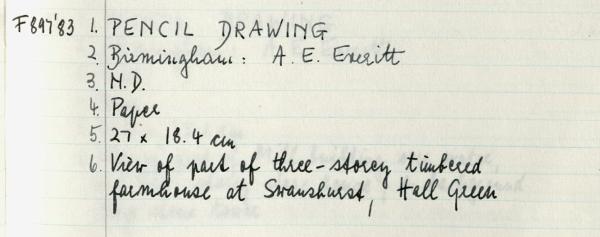 F897'83 1. PENCIL DRAWING
2. Birmingham: A. E. Everitt
3. N.D.
4. Paper
5. 27 x 18.4 cm
6. View of part of three-storey timbered
farmhouse at Swanshurst, Hall Green